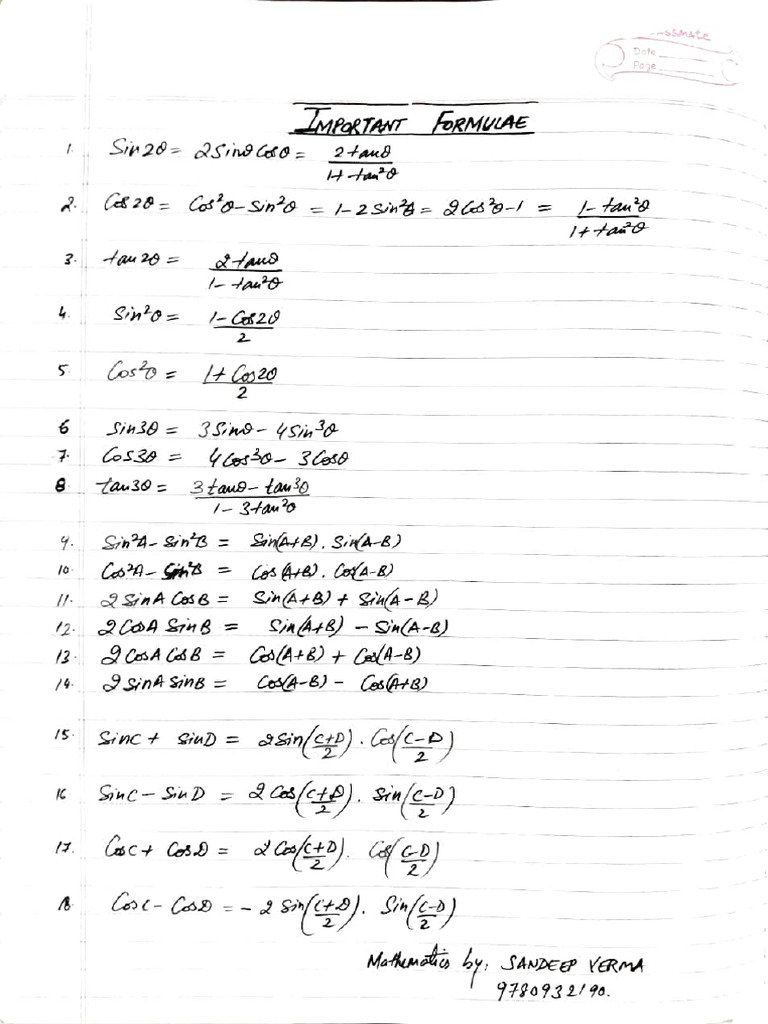 ssmate
Date
Page
IMPORTANT FORMULAE
1. Sin2θ = 2Sinθ Cosθ = 2tanθ / 1+tan²θ
2. Cos2θ = Cos²θ - Sin²θ = 1-2Sin²θ = 2Cos²θ-1 = 1-tan²θ / 1+tan²θ
3. tan2θ = 2tanθ / 1-tan²θ
4. Sin²θ = 1-Cos2θ / 2
5. Cos²θ = 1+Cos2θ / 2
6 Sin3θ = 3Sinθ - 4Sin³θ
7. Cos3θ = 4Cos³θ - 3Cosθ
8 tan3θ = 3tanθ - tan³θ / 1-3tan²θ
9. Sin²A - Sin²B = Sin(A+B). Sin(A-B)
10. Cos²A - Sin²B = Cos(A+B). Cos(A-B)
11. 2SinA CosB = Sin(A+B) + Sin(A-B)
12. 2CosA SinB = Sin(A+B) - Sin(A-B)
13. 2CosA CosB = Cos(A+B) + Cos(A-B)
14. 2SinA SinB = Cos(A-B) - Cos(A+B)
15. SinC + SinD = 2Sin(C+D / 2). Cos(C-D / 2)
16 SinC - SinD = 2Cos(C+D / 2). Sin(C-D / 2)
17. CosC + CosD = 2Cos(C+D / 2). Cos(C-D / 2)
18 CosC - CosD = -2Sin(C+D / 2). Sin(C-D / 2)
Mathematics by: SANDEEP VERMA
9780932190.